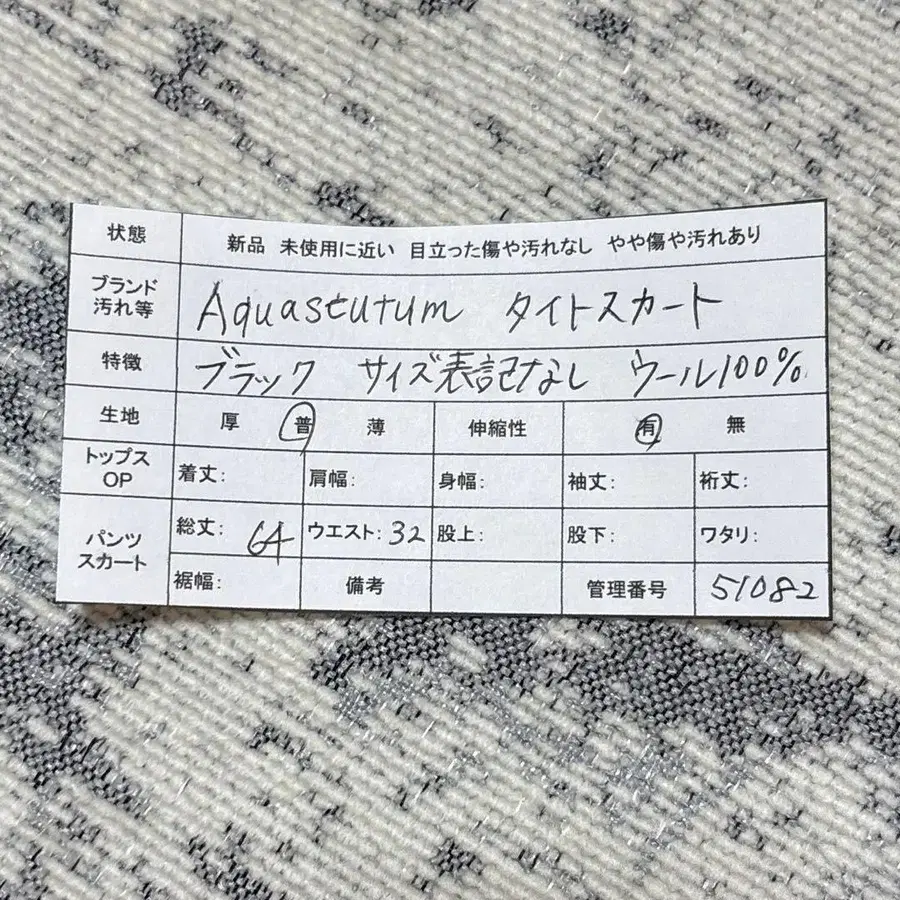 状態 新品 未使用に近い 目立った傷や汚れなし やや傷や汚れあり
ブランド 汚れ等 Aquascutum タイトスカート
特徴 ブラック サイズ表記なし ウール100%
生地 厚 普 薄 伸縮性 有 無
トップス OP 着丈: 肩幅: 身幅: 袖丈: 裄丈:
パンツ スカート 総丈: 64 ウエスト: 32 股上: 股下: ワタリ:
裾幅: 備考 管理番号 51082